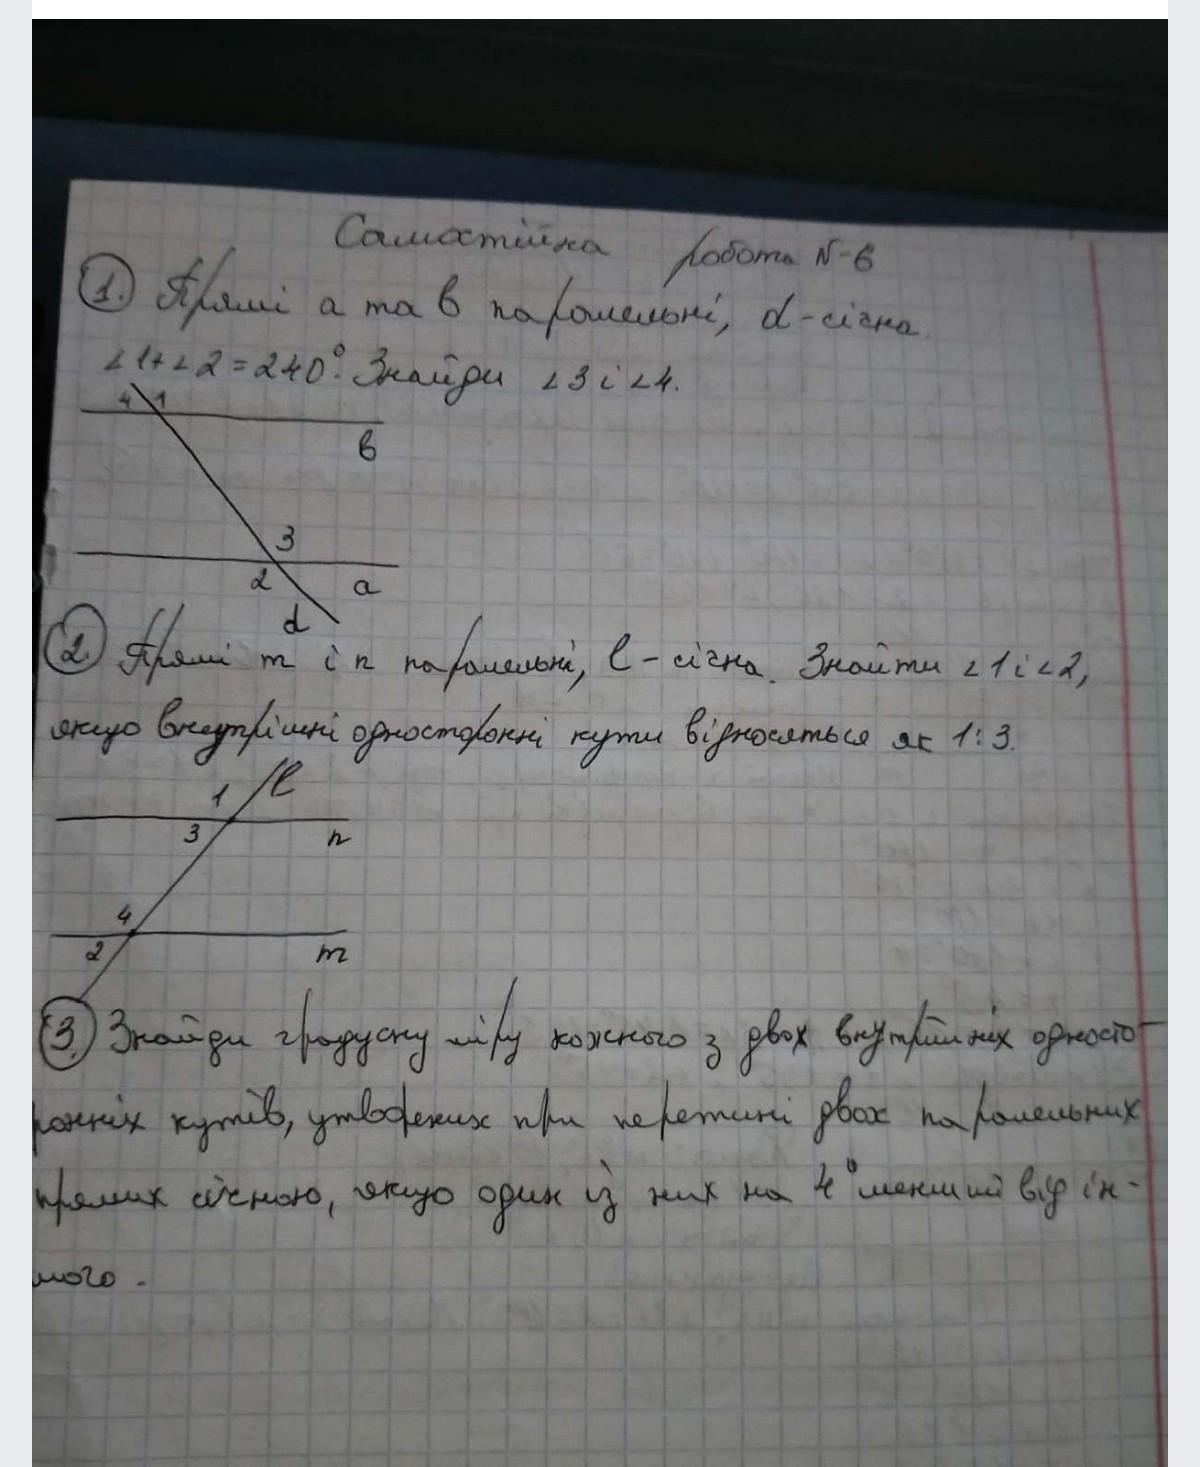 Самостійна робота №6
1. Прямі a та b паралельні, d-січна.
∠1+∠2=240°. Знайди ∠3 і ∠4.
4 1
b
3
2 a
d
2. Прямі m і n паралельні, l - січна. Знайти ∠1 і ∠2,
якщо внутрішні односторонні кути відносяться як 1:3.
1 l
3 n
4
2 m
3. Знайди градусну міру кожного з двох внутрішніх односто-
ронніх кутів, утворених при перетині двох паралельних
прямих січною, якщо один із них на 4° менший від ін-
шого.